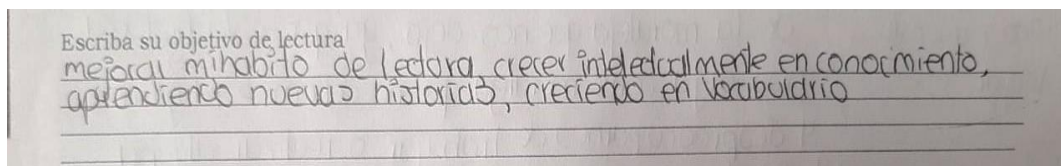 Escriba su objetivo de lectura
mejorar mi habito de lectora, crecer intelectualmente en conocimiento,
aprendiendo nuevas historias, creciendo en vocabulario